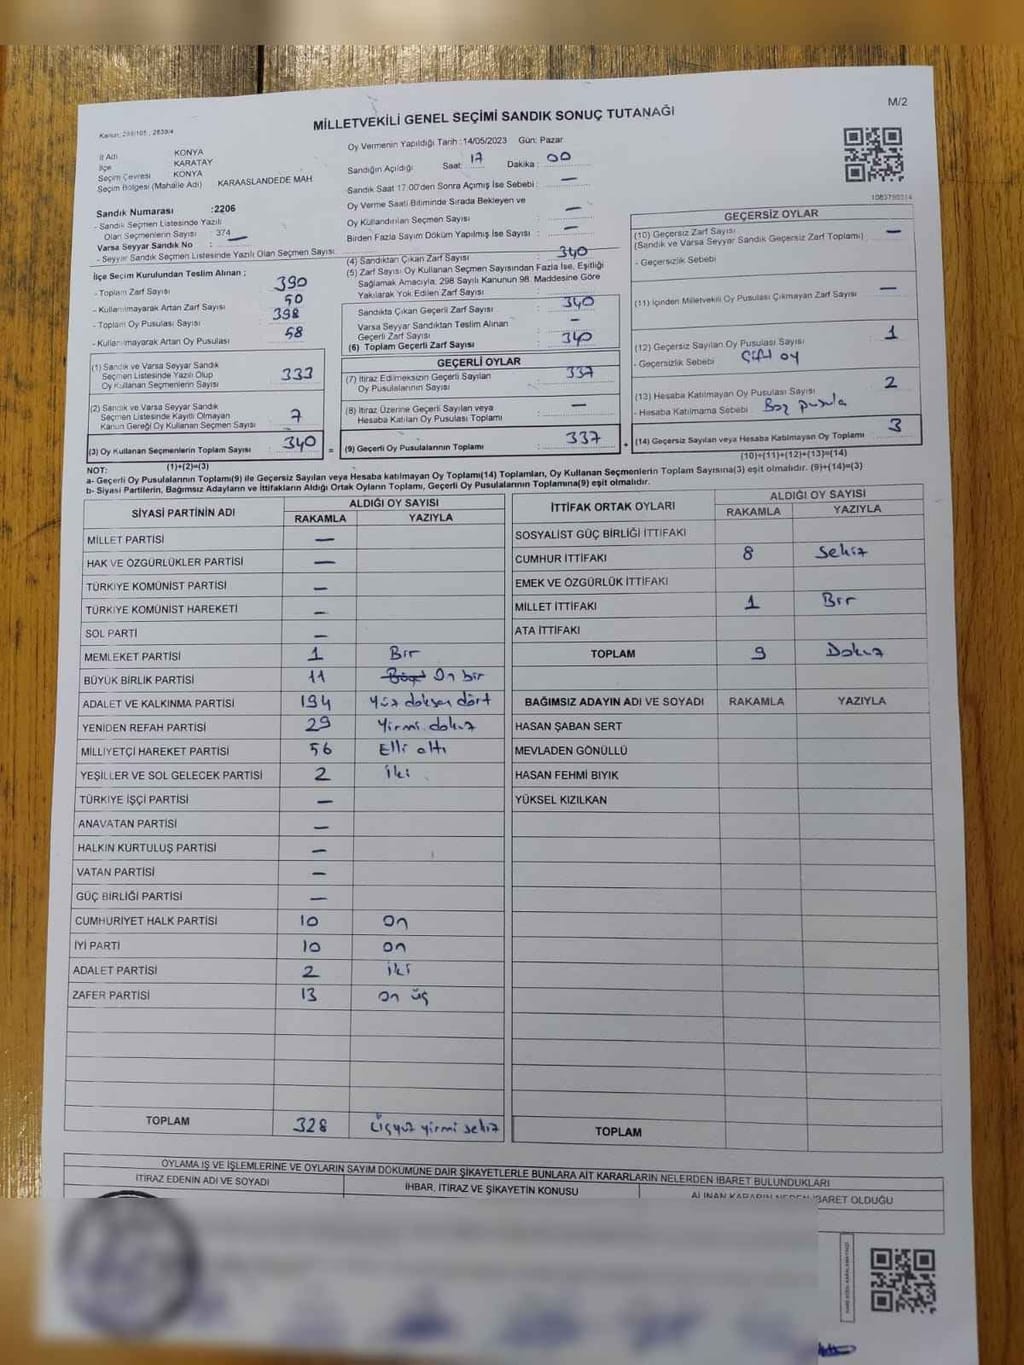 M/2
Kanun: 298/105 , 2839/4
MİLLETVEKİLİ GENEL SEÇİMİ SANDIK SONUÇ TUTANAĞI
İl Adı KONYA
İlçe KARATAY
Seçim Çevresi KONYA
Seçim Bölgesi (Mahalle Adı) KARAASLANDEDE MAH
Sandık Numarası :2206
- Sandık Seçmen Listesinde Yazılı
Olan Seçmenlerin Sayısı 374
Varsa Seyyar Sandık No : —
- Seyyar Sandık Seçmen Listesinde Yazılı Olan Seçmen Sayısı
İlçe Seçim Kurulundan Teslim Alınan ;
- Toplam Zarf Sayısı 390
- Kullanılmayarak Artan Zarf Sayısı 50
- Toplam Oy Pusulası Sayısı 398
- Kullanılmayarak Artan Oy Pusulası 58
(1) Sandık ve Varsa Seyyar Sandık
Seçmen Listesinde Yazılı Olup
Oy Kullanan Seçmenlerin Sayısı 333
(2) Sandık ve Varsa Seyyar Sandık
Seçmen Listesinde Kayıtlı Olmayan
Kanun Gereği Oy Kullanan Seçmen Sayısı 7
(3) Oy Kullanan Seçmenlerin Toplam Sayısı 340 =
(1)+(2)=(3)
Oy Vermenin Yapıldığı Tarih :14/05/2023 Gün: Pazar
Sandığın Açıldığı Saat: 17 Dakika : 00
Sandık Saat 17.00'den Sonra Açımış İse Sebebi : —
Oy Verme Saati Bitiminde Sırada Bekleyen ve
Oy Kullandırılan Seçmen Sayısı : —
Birden Fazla Sayım Döküm Yapılmış İse Sayısı : —
(4) Sandıktan Çıkan Zarf Sayısı : 340
(5) Zarf Sayısı Oy Kullanan Seçmen Sayısından Fazla İse, Eşitliği
Sağlamak Amacıyla, 298 Sayılı Kanunun 98. Maddesine Göre
Yakılarak Yok Edilen Zarf Sayısı :
Sandıkta Çıkan Geçerli Zarf Sayısı : 340
Varsa Seyyar Sandıktan Teslim Alınan
Geçerli Zarf Sayısı : —
(6) Toplam Geçerli Zarf Sayısı : 340
GEÇERLİ OYLAR
(7) İtiraz Edilmeksizin Geçerli Sayılan
Oy Pusulalarının Sayısı : 337
(8) İtiraz Üzerine Geçerli Sayılan veya
Hesaba Katılan Oy Pusulası Toplamı : —
(9) Geçerli Oy Pusulalarının Toplamı : 337 +
1083780214
GEÇERSİZ OYLAR
(10) Geçersiz Zarf Sayısı : —
(Sandık ve Varsa Seyyar Sandık Geçersiz Zarf Toplamı)
- Geçersizlik Sebebi
(11) İçinden Milletvekili Oy Pusulası Çıkmayan Zarf Sayısı —
(12) Geçersiz Sayılan Oy Pusulası Sayısı : 1
- Geçersizlik Sebebi : Çift oy
(13) Hesaba Katılmayan Oy Pusulası Sayısı : 2
- Hesaba Katılmama Sebebi : Boş pusula
(14) Geçersiz Sayılan veya Hesaba Katılmayan Oy Toplamı 3
(10)+(11)+(12)+(13)=(14)
NOT:
a- Geçerli Oy Pusulalarının Toplam(9) ile Geçersiz Sayılan veya Hesaba katılmayan Oy Toplamı(14) Toplamları, Oy Kullanan Seçmenlerin Toplam Sayısına(3) eşit olmalıdır. (9)+(14)=(3)
b- Siyasi Partilerin, Bağımsız Adayların ve İttifakların Aldığı Ortak Oyların Toplamı, Geçerli Oy Pusulalarının Toplamına(9) eşit olmalıdır.
SİYASİ PARTİNİN ADI ALDIĞI OY SAYISI
RAKAMLA YAZIYLA
MİLLET PARTİSİ —
HAK VE ÖZGÜRLÜKLER PARTİSİ —
TÜRKİYE KOMÜNİST PARTİSİ —
TÜRKİYE KOMÜNİST HAREKETİ —
SOL PARTİ —
MEMLEKET PARTİSİ 1 Bir
BÜYÜK BİRLİK PARTİSİ 11 On bir
ADALET VE KALKINMA PARTİSİ 194 Yüz doksan dört
YENİDEN REFAH PARTİSİ 29 Yirmi dokuz
MİLLİYETÇİ HAREKET PARTİSİ 56 Elli altı
YEŞİLLER VE SOL GELECEK PARTİSİ 2 iki
TÜRKİYE İŞÇİ PARTİSİ —
ANAVATAN PARTİSİ —
HALKIN KURTULUŞ PARTİSİ —
VATAN PARTİSİ —
GÜÇ BİRLİĞİ PARTİSİ —
CUMHURİYET HALK PARTİSİ 10 On
İYİ PARTİ 10 on
ADALET PARTİSİ 2 iki
ZAFER PARTİSİ 13 on üç
TOPLAM 328 Üçyüz yirmi sekiz
İTTİFAK ORTAK OYLARI ALDIĞI OY SAYISI
RAKAMLA YAZIYLA
SOSYALİST GÜÇ BİRLİĞİ İTTİFAKI
CUMHUR İTTİFAKI 8 Sekiz
EMEK VE ÖZGÜRLÜK İTTİFAKI
MİLLET İTTİFAKI 1 Bir
ATA İTTİFAKI
TOPLAM 9 Dokuz
BAĞIMSIZ ADAYIN ADI VE SOYADI RAKAMLA YAZIYLA
HASAN ŞABAN SERT
MEVLADEN GÖNÜLLÜ
HASAN FEHMİ BIYIK
YÜKSEL KIZILKAN
TOPLAM
OYLAMA İŞ VE İŞLEMLERİNE VE OYLARIN SAYIM DÖKÜMÜNE DAİR ŞİKAYETLERLE BUNLARA AİT KARARLARIN NELERDEN İBARET BULUNDUKLARI
İTİRAZ EDENİN ADI VE SOYADI İHBAR, İTİRAZ VE ŞİKAYETİN KONUSU ALINAN KARARIN NEDEN İBARET OLDUĞU